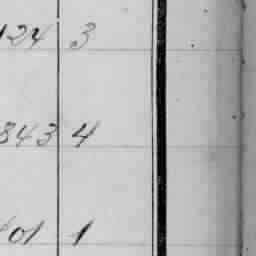 124 3
843 4
101 1